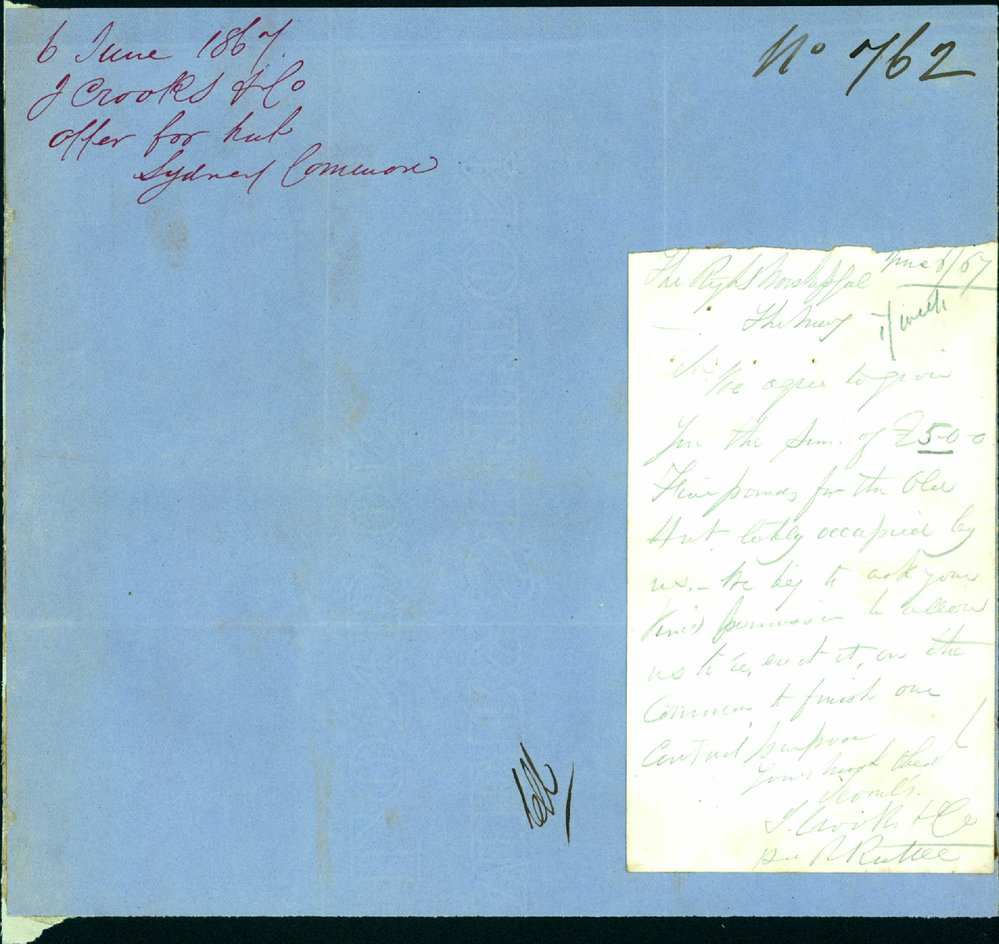 6 June 1867.
J Crooks & Co
offer for hut
Sydney Common
No 762
June 6/67
The Right Worshipful
The May
Sir
We agree to give
You the Sum of £5-0-0
Five pounds for the Old
Hut lately occupied by
us. - We beg to ask your
Kind permission to allow
us to re, erect it, on the
Common to finish our
Contract purpose
Yours most obed
Servnts.
J. Crooks & Co
per R